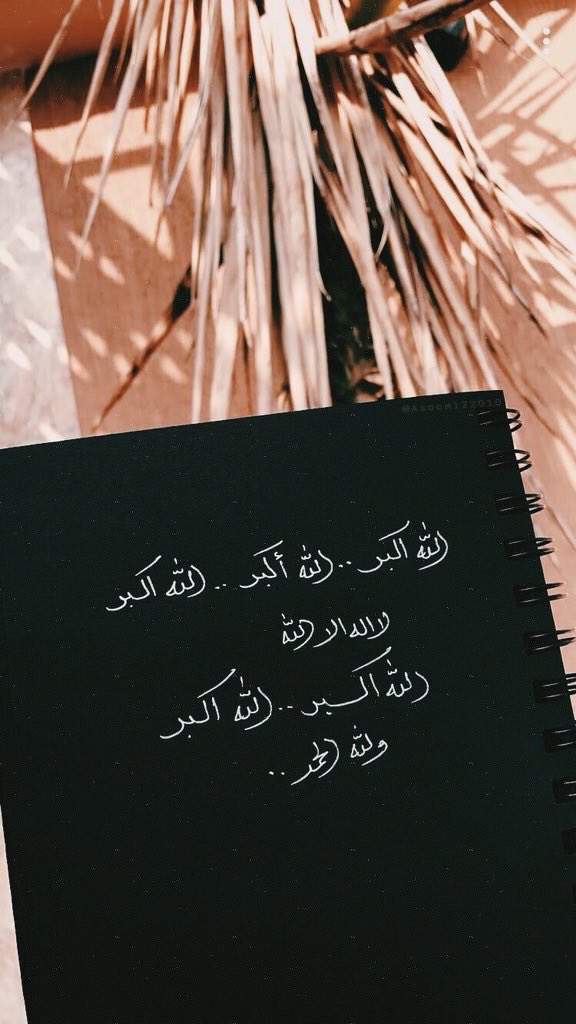 @Asoom122019
الله اكبر .. الله أكبر .. الله اكبر
لا اله الا الله
الله اكبر .. الله اكبر
ولله الحمد ..